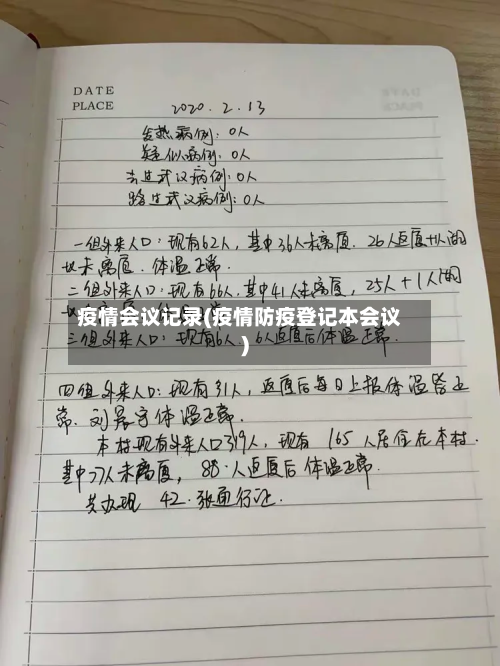 DATE
PLACE
2020.2.13
发热病例:0人
疑似病例:0人
去过武汉病例:0人
路过武汉病例:0人
一组外来人口:现有62人,其中36人未离厦,26人返厦
未离厦,体温正常.
二组外来人口:现有66人,其中41人未离厦,25人+1人
疫情会议记录(疫情防疫登记本会议
)
三组外来人口:现有6人,6人返厦后体温正常.
四组外来人口:现有31人,返厦后每日上报体温皆正
常.刘字体温正常.
本村现有外来人口319人,现有165人居住在本村.
其中77人未离厦,88人返厦后体温正常.
共办理42张通行证.